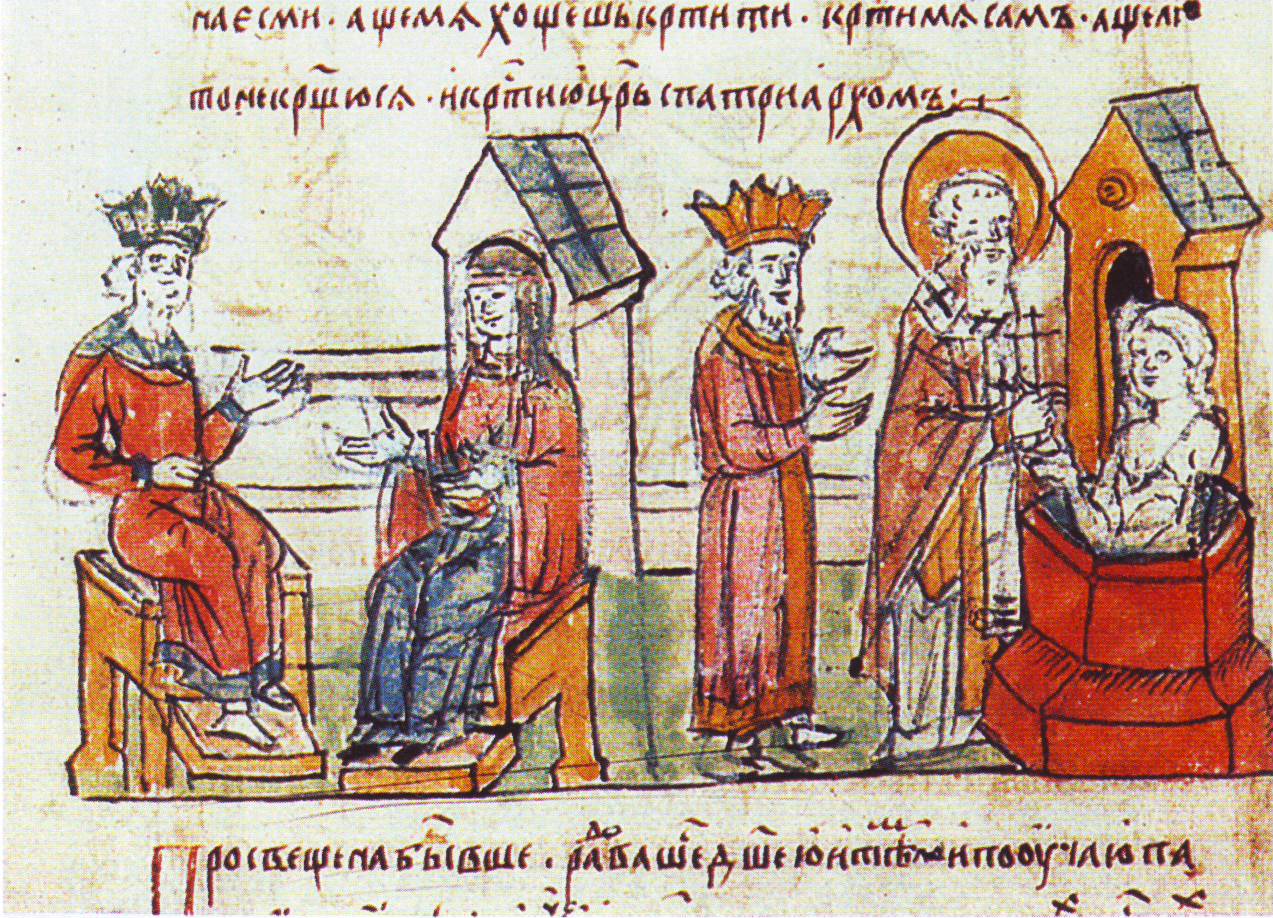 на есми · аще мѧ хощешь кр҃тити · кр҃ти мѧ самъ · аще ли
то не кр҃щюсѧ · и кр҃ти ю цр҃ь с патриархомъ :
Просвѣщена бывши · радоваше д҃шею и тѣломъ и поучаю па